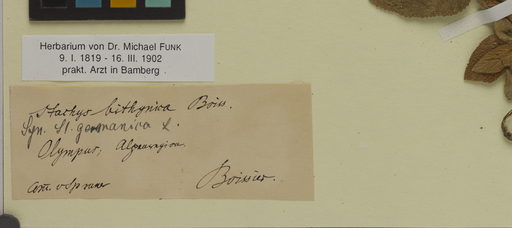 Herbarium von Dr. Michael FUNK
9. I. 1819 - 16. III. 1902
prakt. Arzt in Bamberg
Stachys bithynica Boiss.
Syn. St. germanica L.
Olympus, Alpenregion.
Boissier.